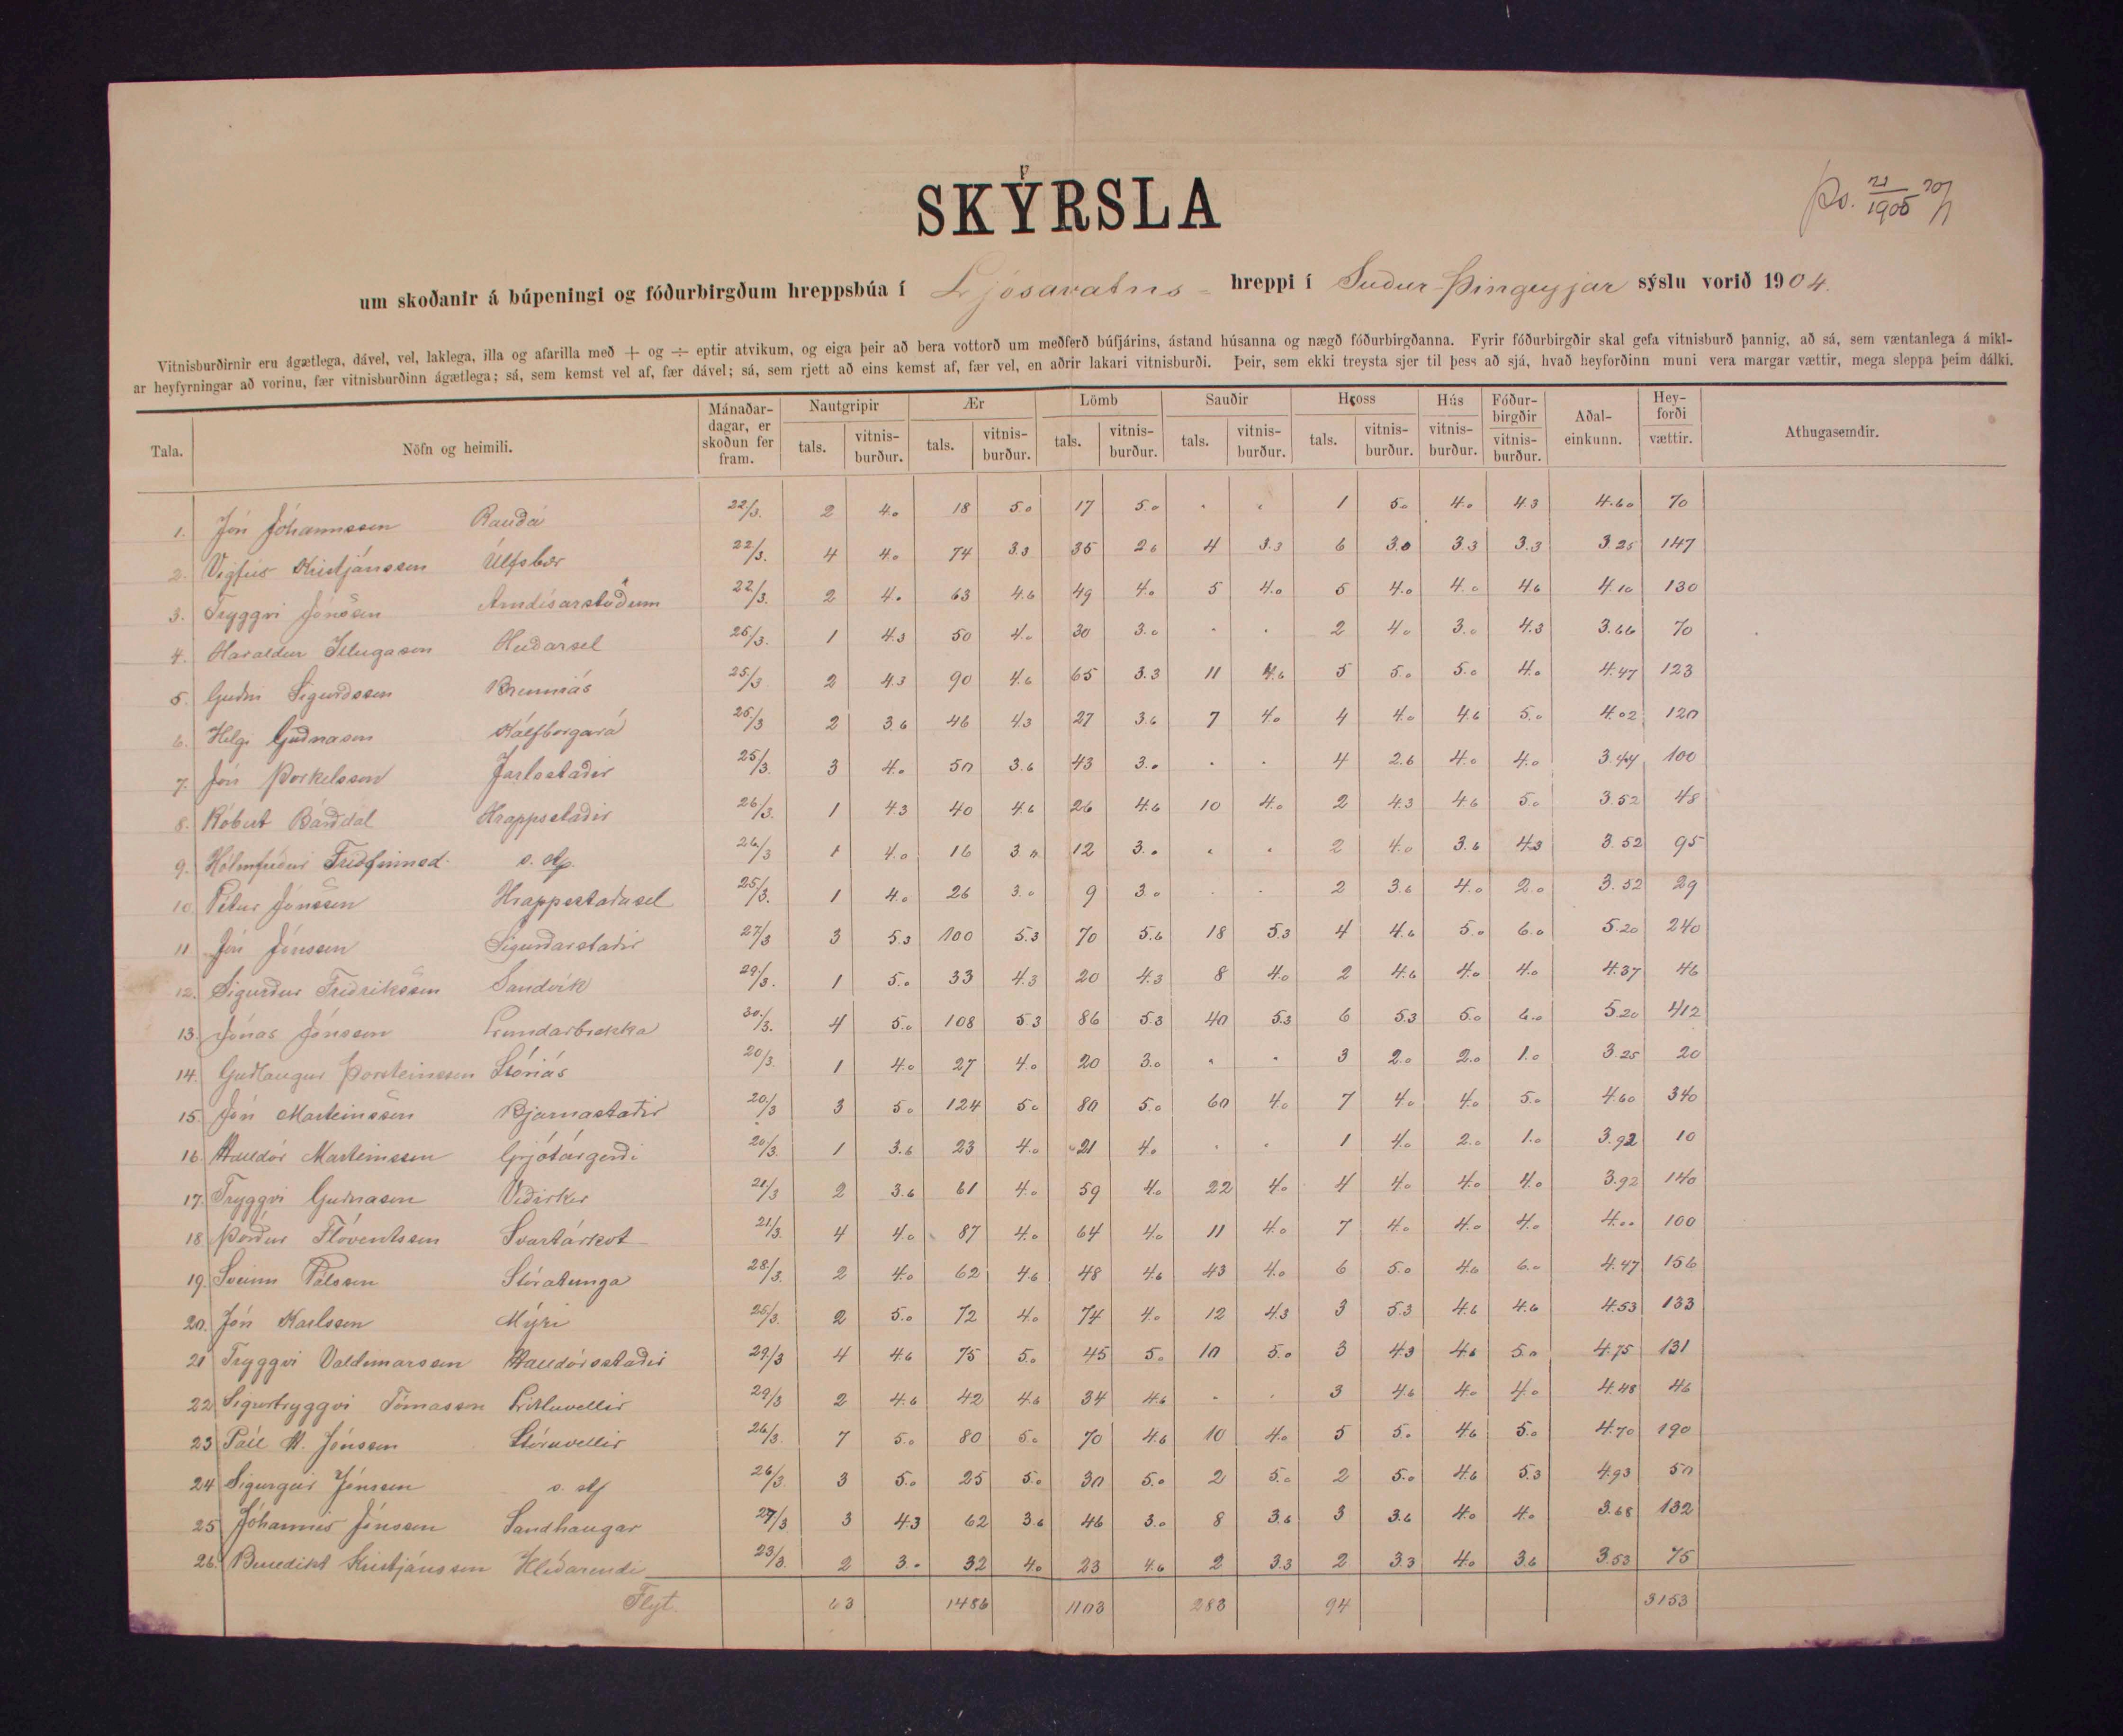 Þs. 21/1905 20/1
SKÝRSLA
um skoðanir á búpeningi og fóðurbirgðum hreppsbúa í Ljósavatns- hreppi í Suður-Þingeyjar sýslu vorið 1904.
Vitnisburðirnir eru ágætlega, dável, vel, laklega, illa og afarilla með + og ÷ eptir atvikum, og eiga þeir að bera vottorð um meðferð búfjárins, ástand húsanna og nægð fóðurbirgðanna. Fyrir fóðurbirgðir skal gefa vitnisburð þannig, að sá, sem væntanlega á mikl-
ar heyfyrningar að vorinu, fær vitnisburðinn ágætlega; sá, sem kemst vel af, fær dável; sá, sem rjett að eins kemst af, fær vel, en aðrir lakari vitnisburði. Þeir, sem ekki treysta sjer til þess að sjá, hvað heyforðinn muni vera margar vættir, mega sleppa þeim dálki.
Tala. Nöfn og heimili. Mánaðardagar, er skoðun fer fram. Nautgripir tals. vitnisburður. Ær tals. vitnisburður. Lömb tals. vitnisburður. Sauðir tals. vitnisburður. Hross tals. vitnisburður. Hús vitnisburður. Fóðurbirgðir vitnisburður. Aðaleinkunn. Heyforði vættir. Athugasemdir.
1. Jón Jóhannsson Rauðá 22/3. 2 4.0 18 5.0 17 5.0 . . 1 5.0 4.0 4.3 4.60 70
2. Vigfús Kristjánsson Úlfsbær 22/3. 4 4.0 74 3.3 35 2.6 4 3.3 6 3.0 3.3 3.3 3.25 147
3. Tryggvi Jónsson Arndísarstöðum 22/3. 2 4.0 63 4.6 49 4.0 5 4.0 5 4.0 4.0 4.6 4.10 130
4. Haraldur Illugason Heiðarsel 25/3. 1 4.3 50 4.0 30 3.0 . . 2 4.0 3.0 4.3 3.66 70
5. Guðni Sigurðsson Brunnás 25/3 2 4.3 90 4.6 65 3.3 11 4.6 5 5.0 5.0 4.0 4.47 123
6. Helgi Guðnason Kálfborgará 25/3 2 3.6 46 4.3 27 3.6 7 4.0 4 4.0 4.6 5.0 4.02 120
7. Jón Þorkelsson Jarlsstaðir 25/3. 3 4.0 50 3.6 43 3.0 . . 4 2.6 4.0 4.0 3.44 100
8. Róbert Bárðdal Hrappsstaðir 26/3. 1 4.3 40 4.6 26 4.6 10 4.0 2 4.3 4.6 5.0 3.52 48
9. Hólmfríður Friðfinnsd. s. st. 26/3 1 4.0 16 3.0 12 3.0 . . 2 4.0 3.6 4.3 3.52 95
10 Pétur Jónsson Hrappsstaðasel 25/3. 1 4.0 26 3.0 9 3.0 . . 2 3.6 4.0 2.0 3.52 29
11 Jón Jónsson Sigurðarstaðir 27/3 3 5.3 100 5.3 70 5.6 18 5.3 4 4.6 5.0 6.0 5.20 240
12. Sigurður Friðriksson Sandvík 29/3. 1 5.0 33 4.3 20 4.3 8 4.0 2 4.6 4.0 4.0 4.37 46
13. Jónas Jónsson Lundarbrekka 30/3. 4 5.0 108 5.3 86 5.3 40 5.3 6 5.3 5.0 6.0 5.20 412
14. Guðlaugur Þorsteinsson Stóriás 20/3. 1 4.0 27 4.0 20 3.0 . . 3 2.0 2.0 1.0 3.25 20
15. Jón Marteinsson Bjarnastaðir 20/3 3 5.0 124 5.0 80 5.0 60 4.0 7 4.0 4.0 5.0 4.60 340
16. Halldór Marteinsson Grjótárgerði 20/3. 1 3.6 23 4.0 21 4.0 . . 1 4.0 2.0 1.0 3.92 10
17. Tryggvi Guðnason Víðirker 21/3 2 3.6 61 4.0 59 4.0 22 4.0 4 4.0 4.0 4.0 3.92 140
18 Þórður Flóventsson Svartárkot 21/3. 4 4.0 87 4.0 64 4.0 11 4.0 7 4.0 4.0 4.0 4.00 100
19. Sveinn Pálsson Stóratunga 28/3. 2 4.0 62 4.6 48 4.6 43 4.0 6 5.0 4.6 6.0 4.47 156
20. Jón Karlsson Mýri 25/3. 2 5.0 72 4.0 74 4.0 12 4.3 3 5.3 4.6 4.6 4.53 133
21 Tryggvi Valdimarsson Halldórsstaðir 29/3 4 4.6 75 5.0 45 5.0 10 5.0 3 4.3 4.6 5.0 4.75 131
22 Sigurtryggvi Tómasson Litluvellir 29/3 2 4.6 42 4.6 34 4.6 . . 3 4.6 4.0 4.0 4.48 46
23 Páll H. Jónsson Stóruvellir 26/3. 7 5.0 80 5.0 70 4.6 10 4.0 5 5.0 4.6 5.0 4.70 190
24 Sigurgeir Jónsson s. st. 26/3 3 5.0 25 5.0 30 5.0 2 5.0 2 5.0 4.6 5.3 4.93 50
25 Jóhannes Jónsson Sandhaugar 27/3 3 4.3 62 3.6 46 3.0 8 3.6 3 3.6 4.0 4.0 3.68 132
26. Benedikt Kristjánsson Hlíðarendi 23/3. 2 3.0 32 4.0 23 4.6 2 3.3 2 3.3 4.0 3.6 3.53 75
Flyt. 63 1486 1103 283 94 3153